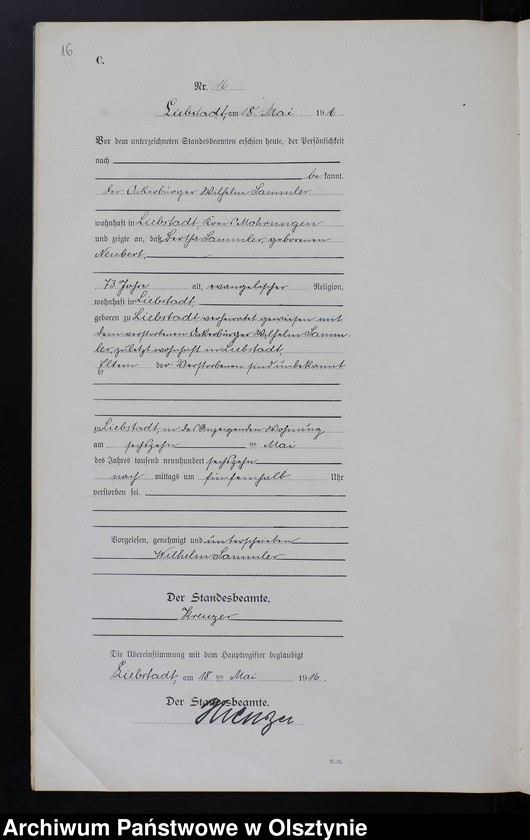 16
C.
Nr. 16
Liebstadt, am 18. Mai 1916.
Vor dem unterzeichneten Standesbeamten erschien heute, der Persönlichkeit
nach
be kannt,
der Ackerbürger Wilhelm Sammler
wohnhaft in Liebstadt, Kreis Mohrungen
und zeigte an, daß Bertha Sammler, geborenen
Neubert,
73 Jahre alt, evangelischer Religion,
wohnhaft in Liebstadt,
geboren zu Liebstadt verheiratet gewesen mit
dem verstorbenen Ackerbürger Wilhelm Samm-
ler, zuletzt wohnhaft in Liebstadt,
Eltern der Verstorbenen sind unbekannt
zu Liebstadt, in des Anzeigenden Wohnung
am sechszehn ten Mai
des Jahres tausend neunhundert sechszehn
nach mittags um fünfeinhalb Uhr
verstorben sei.
Vorgelesen, genehmigt und unterschrieben
Wilhelm Sammler
Der Standesbeamte.
Kreuzer
Die Übereinstimmung mit dem Hauptregister beglaubigt
Liebstadt, am 18 ten Mai 1916.
Der Standesbeamte.
Kreuzer
Archiwum Państwowe w Olsztynie